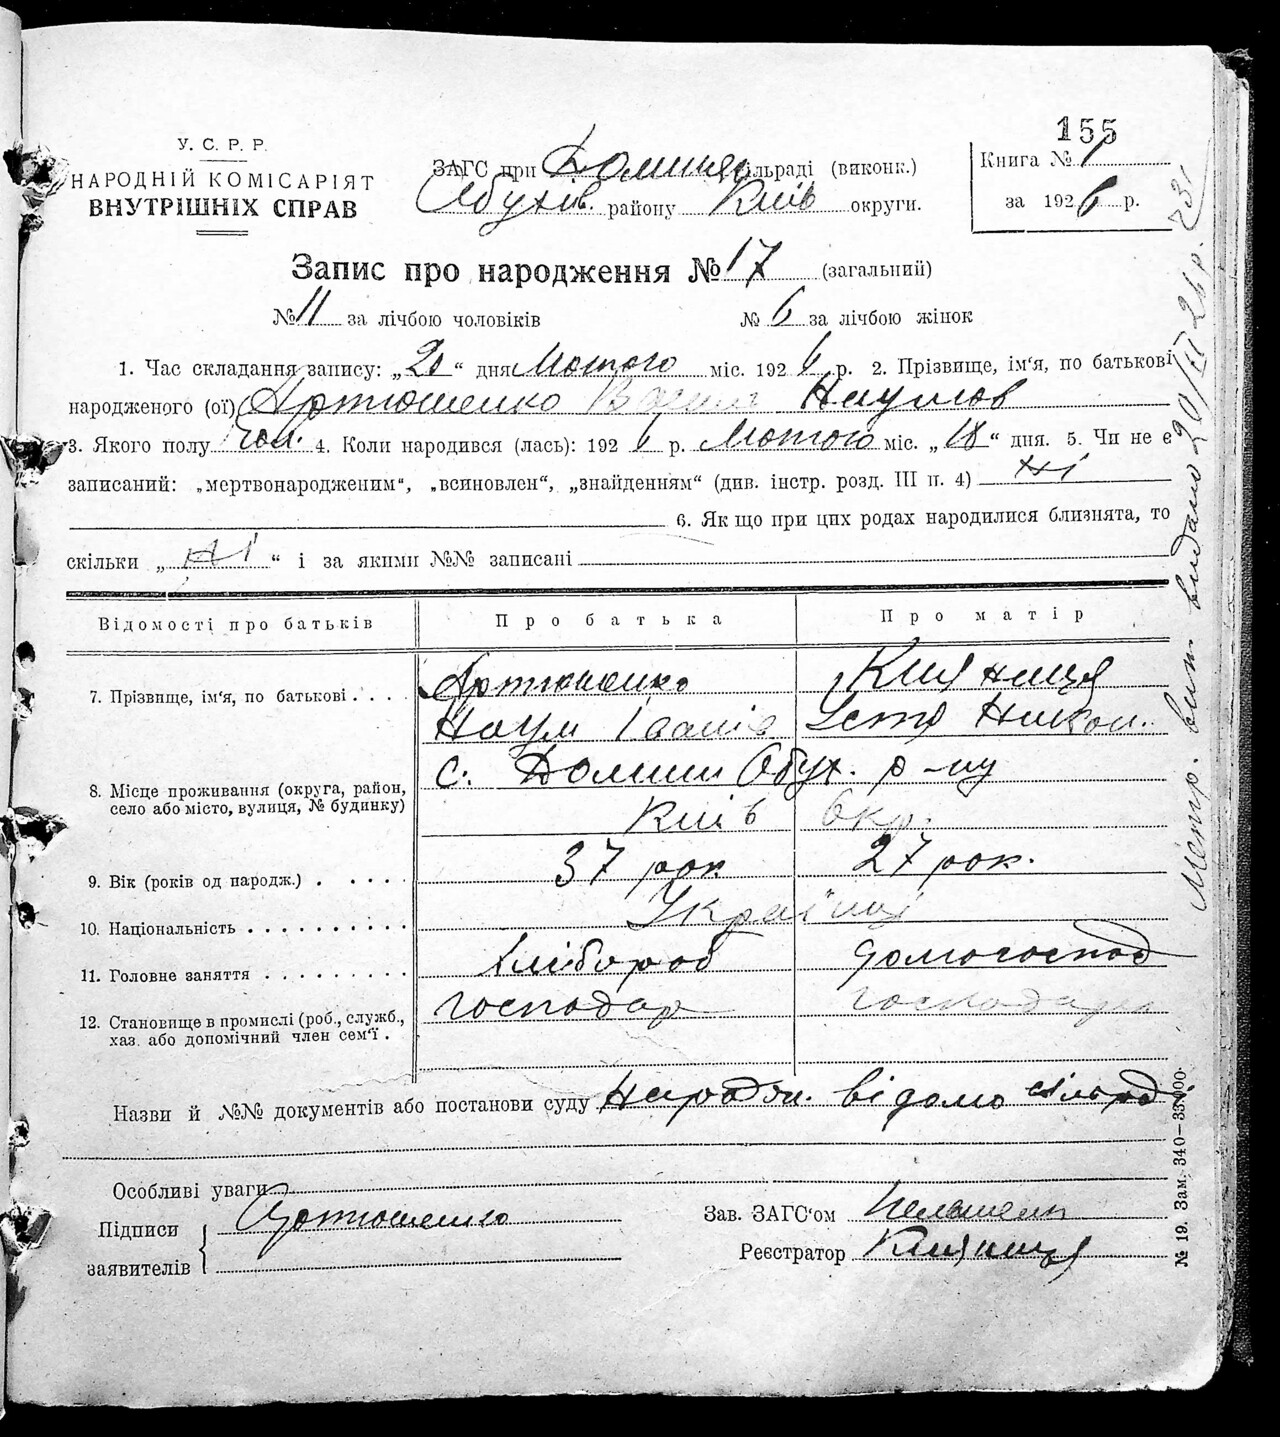 155
У. С. Р. Р.
НАРОДНІЙ КОМІСАРІЯТ
ВНУТРІШНІХ СПРАВ
ЗАГС при Долинян сільраді (виконк.)
Обухів. району Київ округи.
Книга № 1
за 1926 р.
Запис про народження № 17 (загальний)
№ 11 за лічбою чоловіків № 6 за лічбою жінок
1. Час складання запису: „20“ дня Лютого міс. 1926 р. 2. Прізвище, ім‘я, по батькові
народженого (ої) Артюшенко Наумов
3. Якого полу Чол. 4. Коли народився (лась): 1926 р. Лютого міс. „18“ дня. 5. Чи не є
записаний: „мертвонародженим“, „всиновлен“, „знайденням“ (див. інстр. розд. III п. 4) Ні
6. Як що при цих родах народилися близнята, то
скільки „Ні“ і за якими №№ записані
Відомості про батьків Про батька Про матір
7. Прізвище, ім‘я, по батькові . . . Артюшенко Кияниця
Наум Іванів Устя Никон.
8. Місце проживання (округа, район, село або місто, вулиця, № будинку) с. Долини Обух. р-ну
Київ Окр.
9. Вік (років од народж.) . . . . . 37 рок 27 рок.
10. Національність . . . . . . . . . . Українці
11. Головне заняття . . . . . . . . . Хлібороб домогоспод
12. Становище в промислі (роб., служб., господар
хаз. або допомічний член сем‘ї .
Назви й №№ документів або постанови суду Народж. відомо сільраді
Особливі уваги
Підписи Артюшенко Зав. ЗАГС‘ом
заявителів Реєстратор Кияниця
Метр. вит. видано 20/III 26 р.
№ 19. Зам. 340—33.000.